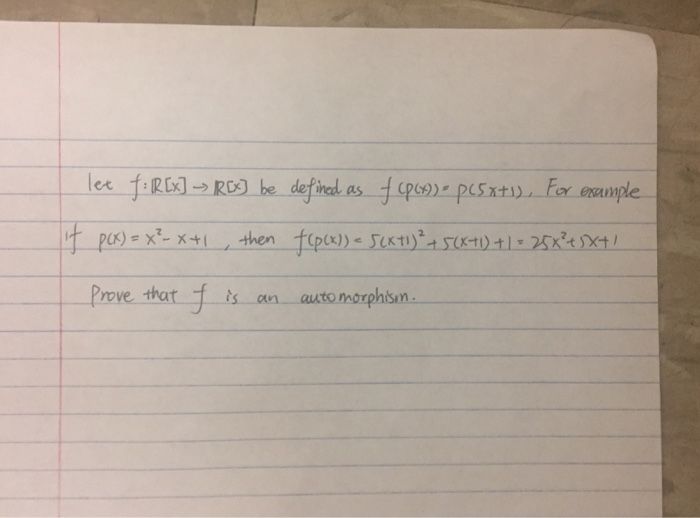 let f: ℝ[x] → ℝ[x] be defined as f(p(x)) = p(5x+1). For example
if p(x) = x² - x + 1, then f(p(x)) = 5(x+1)² + 5(x+1) + 1 = 25x² + 5x + 1
Prove that f is an automorphism.